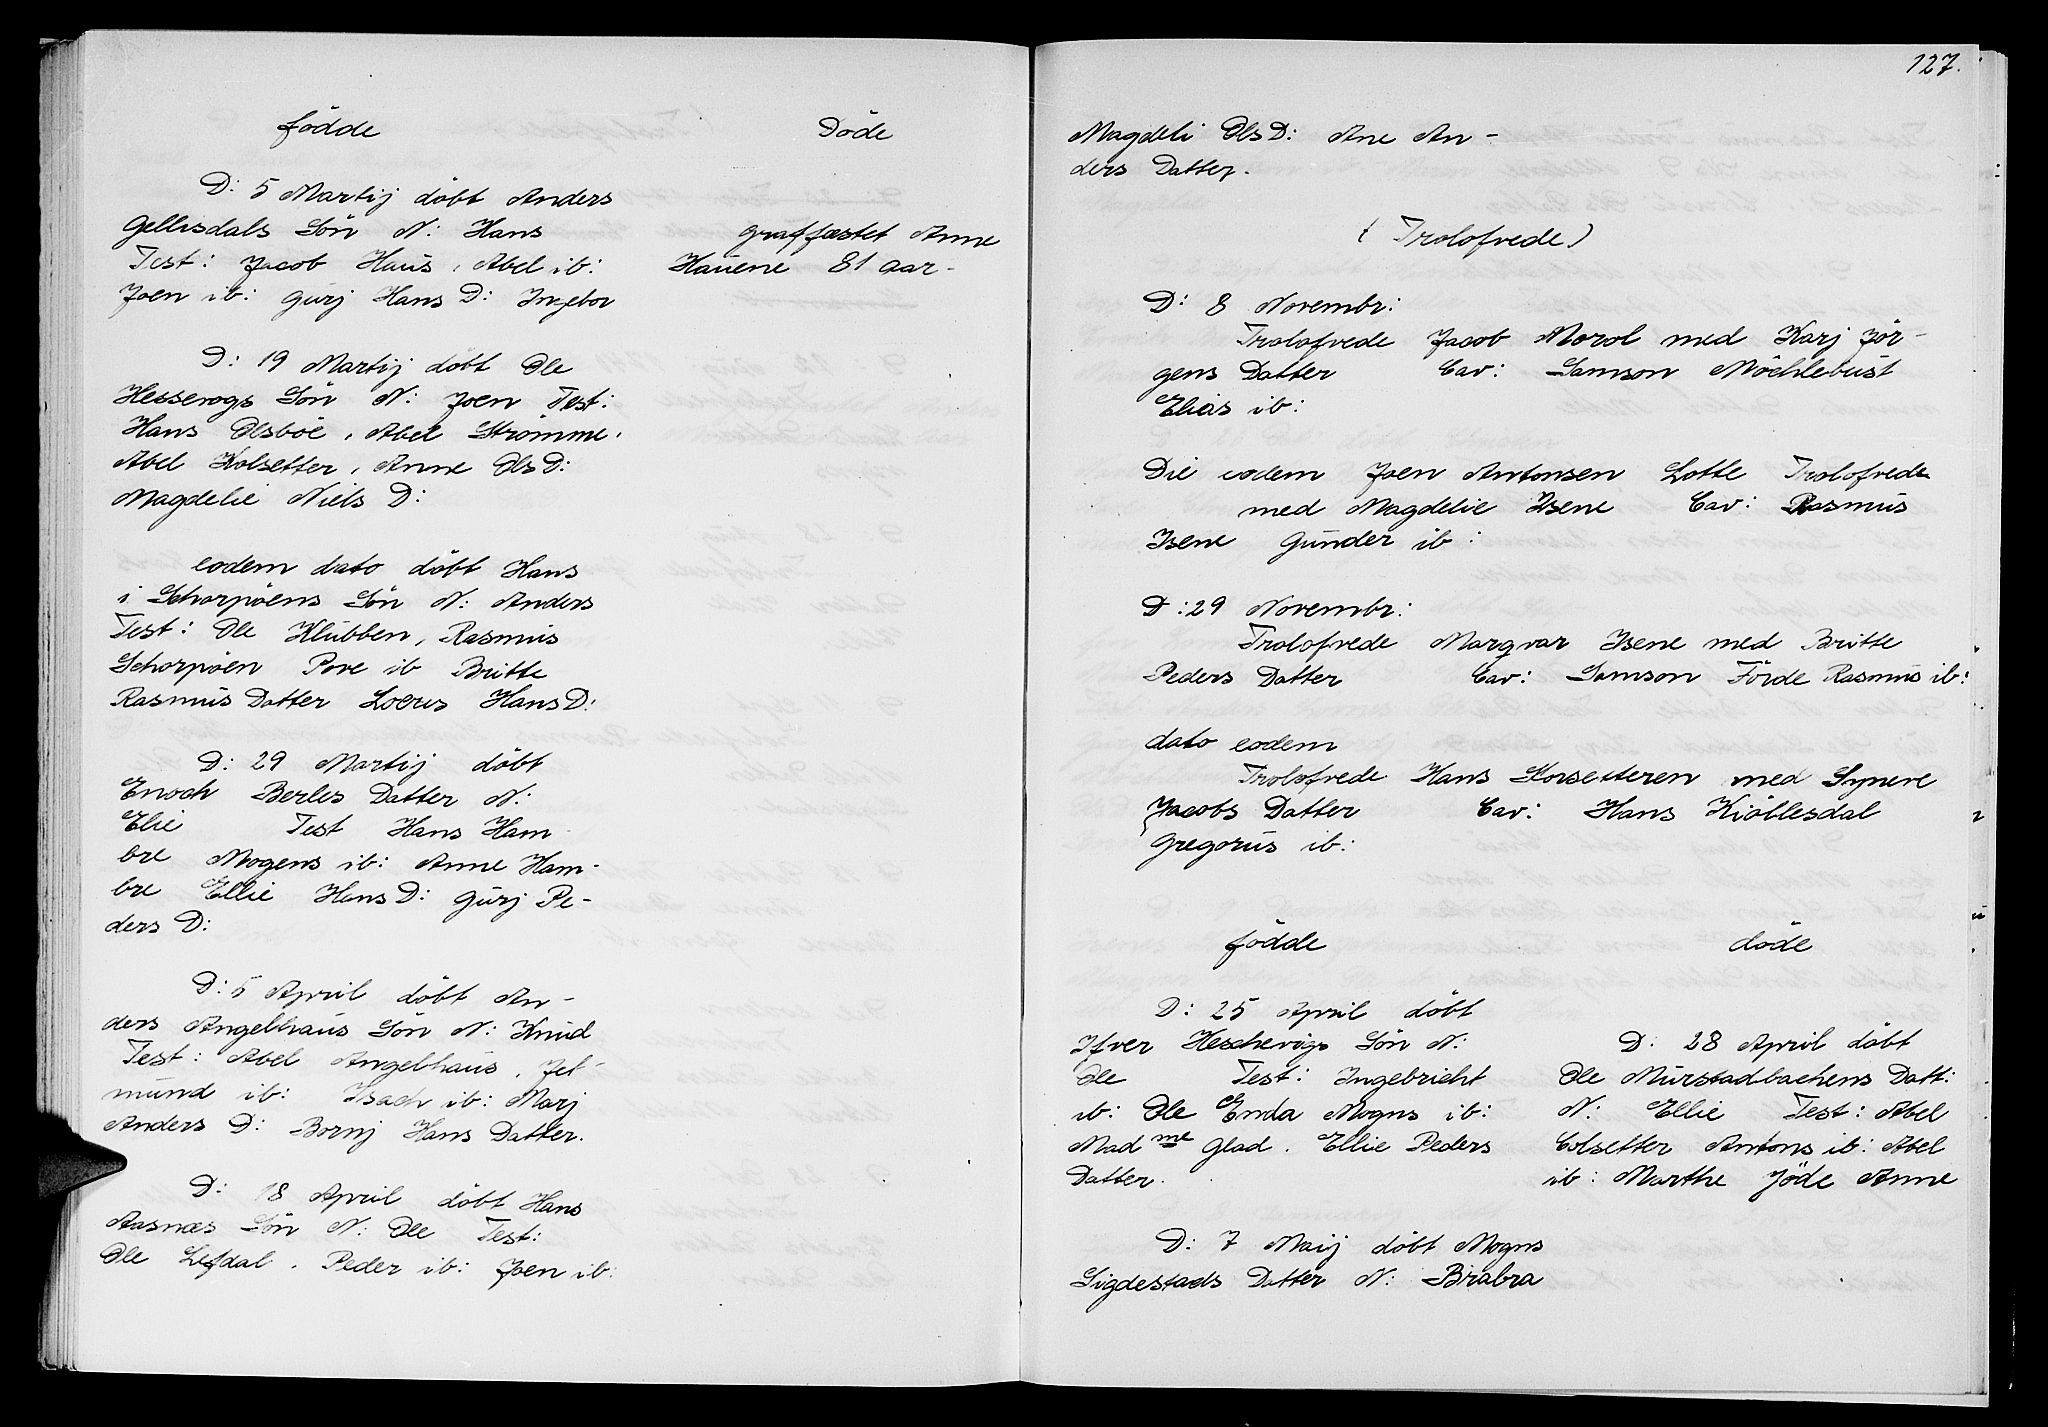 födde
D: 5 Martij döbt Anders
Gellisdals Sön N: Hans
Test: Jacob Haus, Abel ib:
Joen ib: Gurj Hans D: Ingebor
D: 19 Martij döbt Ole
Hesserogs Sön N: Joen Test:
Hans Olsböe, Abel Strömme,
Abel Kolsetter, Anne Ols D:
Magdelie Niels D:
eodem dato döbt Hans
i Schorpöens Sön N: Anders
Test: Ole Klubben, Rasmus
Schorpöen Pove ib Britte
Rasmus Datter Hans D:
D: 29 Martij döbt
Enoch Berles Datter N:
Elie Test Hans Ham
bre Mogens ib: Anne Ham-
bre Ellie Hans D: Gurj Pe-
ders D:
D: 5 April döbt An-
ders Angelhaus Sön N: Knud
Test: Abel Angelhaus, Jet-
mund ib: Isach ib: Marj
Anders D: Bornj Hans Datter.
D: 18 April döbt Hans
Aasnæs Sön N: Ole Test:
Ole Lefdal, Peder ib: Joen ib:
Döde
graffæstet Anne
Hauene 81 aar-
127.
Magdeli Ols D: Ane An-
ders Datter.
( Trolofvede )
D: 8 Novembr:
Trolofvede Jacob Morol med Karj Jör-
gens Datter Cav: Samson Möchlebust
Elias ib:
Die eodem Joen Antonsen Lotte Trolofvede
med Magdelie Isene Cav: Rasmus
Isene Gunder ib:
D: 29 Novembr:
Trolofvede Marqvar Isene med Britte
Peders Datter Cav: Samson Förde Rasmus ib:
dato eodem
Trolofvede Hans Horsetteren med Syneve
Jacobs Datter Cav: Hans Kiöllesdal
Gregorus ib:
födde
D: 25 April döbt
Ifver Heschevigs Sön N:
Ole Test: Ingebricht
ib: Ole Enda Mogns ib:
Mad me Glad. Ellie Peders
Datter.
D: 7 Maij döbt Mogns
Sigdestads Datter N: Brabra
döde
D: 28 April döbt
Ole Murstadbachens Datt:
N: Ellie Test: Abel
Colsetter Antons ib: Abel
ib: Marthe Jöde Anne